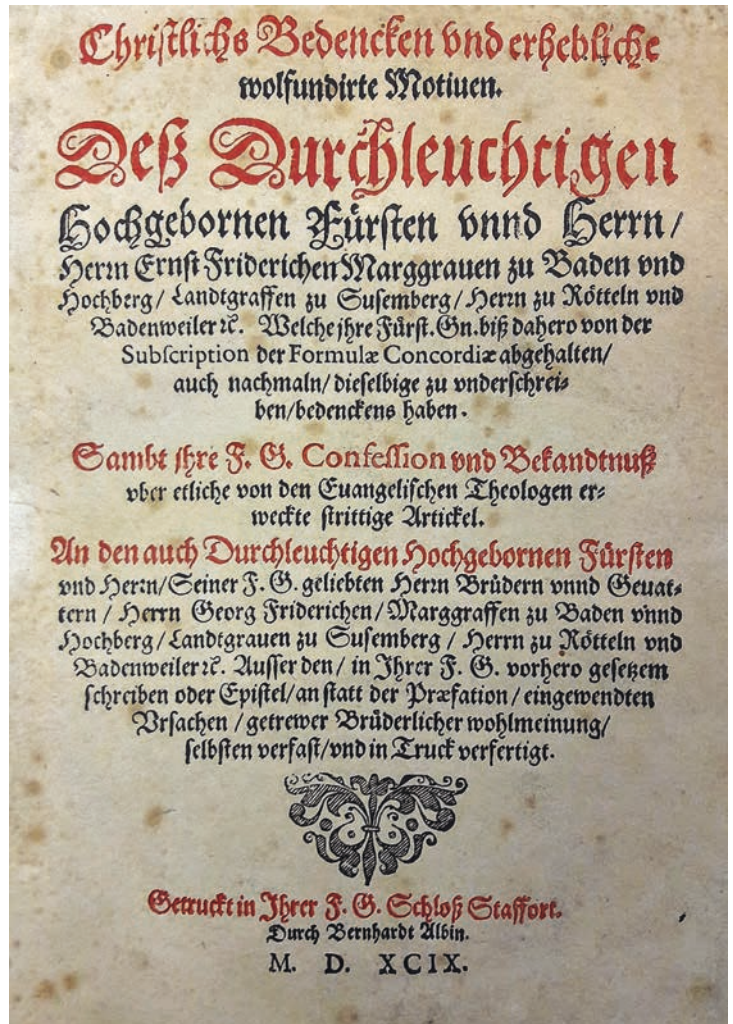 Christlichs Bedencken vnd erhebliche
wolfundirte Motiuen.
Deß Durchleuchtigen
Hochgebornen Fürsten vnnd Herrn/
Herrn Ernst Friderichen Marggrauen zu Baden vnd
Hochberg/ Landtgraffen zu Susemberg/ Herrn zu Rötteln vnd
Badenweiler ꝛc. Welche jhre Fürst. Gn. biß dahero von der
Subscription der Formulæ Concordiæ abgehalten/
auch nachmaln/ dieselbige zu vnderschrei-
ben/ bedenckens haben.
Sambt jhre F. G. Confession vnd Bekandtnuß
vber etliche von den Euangelischen Theologen er-
weckte strittige Artickel.
An den auch Durchleuchtigen Hochgebornen Fürsten
vnd Herrn/ Seiner F. G. geliebten Herrn Brüdern vnnd Geuat-
tern / Herrn Georg Friderichen/ Marggraffen zu Baden vnnd
Hochberg/ Landtgrauen zu Susemberg / Herrn zu Rötteln vnd
Badenweiler ꝛc. Ausser den/ in Ihrer F. G. vorhero gesetzem
schreiben oder Epistel/ an statt der Præfation / eingewendten
Vrsachen / getrewer Brüderlicher wohlmeinung/
selbsten verfast/ vnd in Truck verfertigt.
Getruckt in Ihrer F. G. Schloß Staffort.
Durch Bernhardt Albin.
M. D. XCIX.